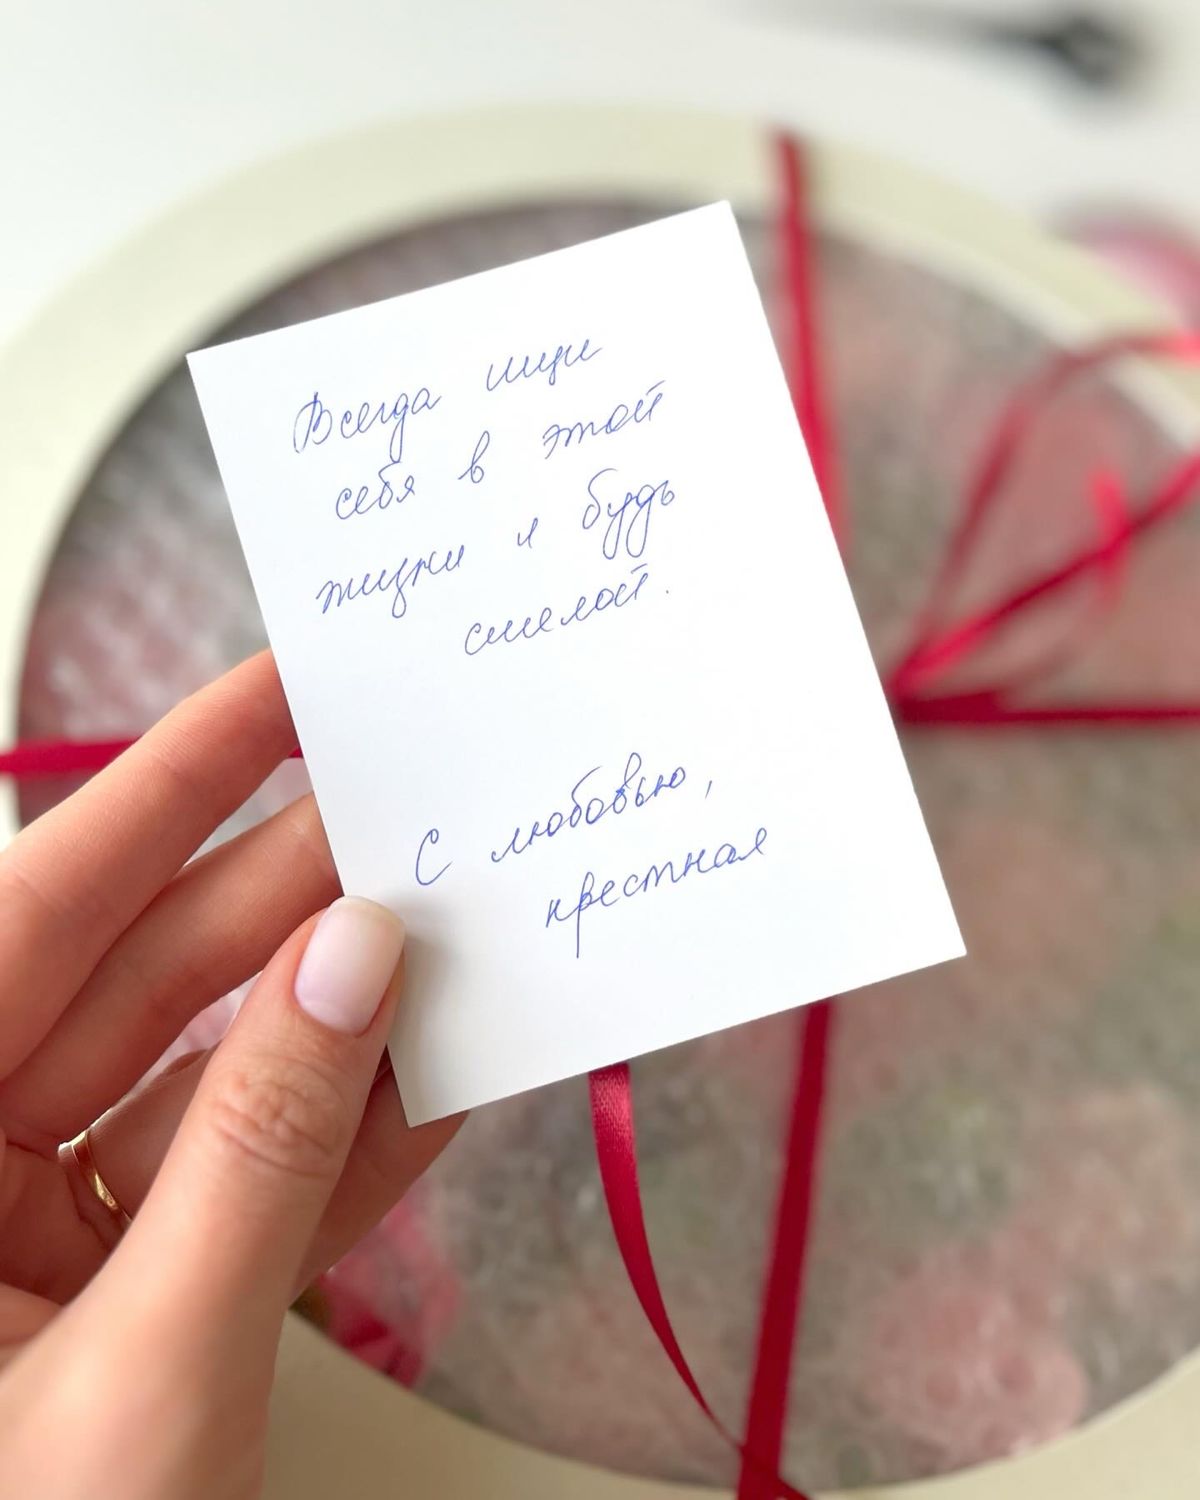 Всегда ищи
себя в этой
жизни и будь
смелой.
С любовью,
крестная